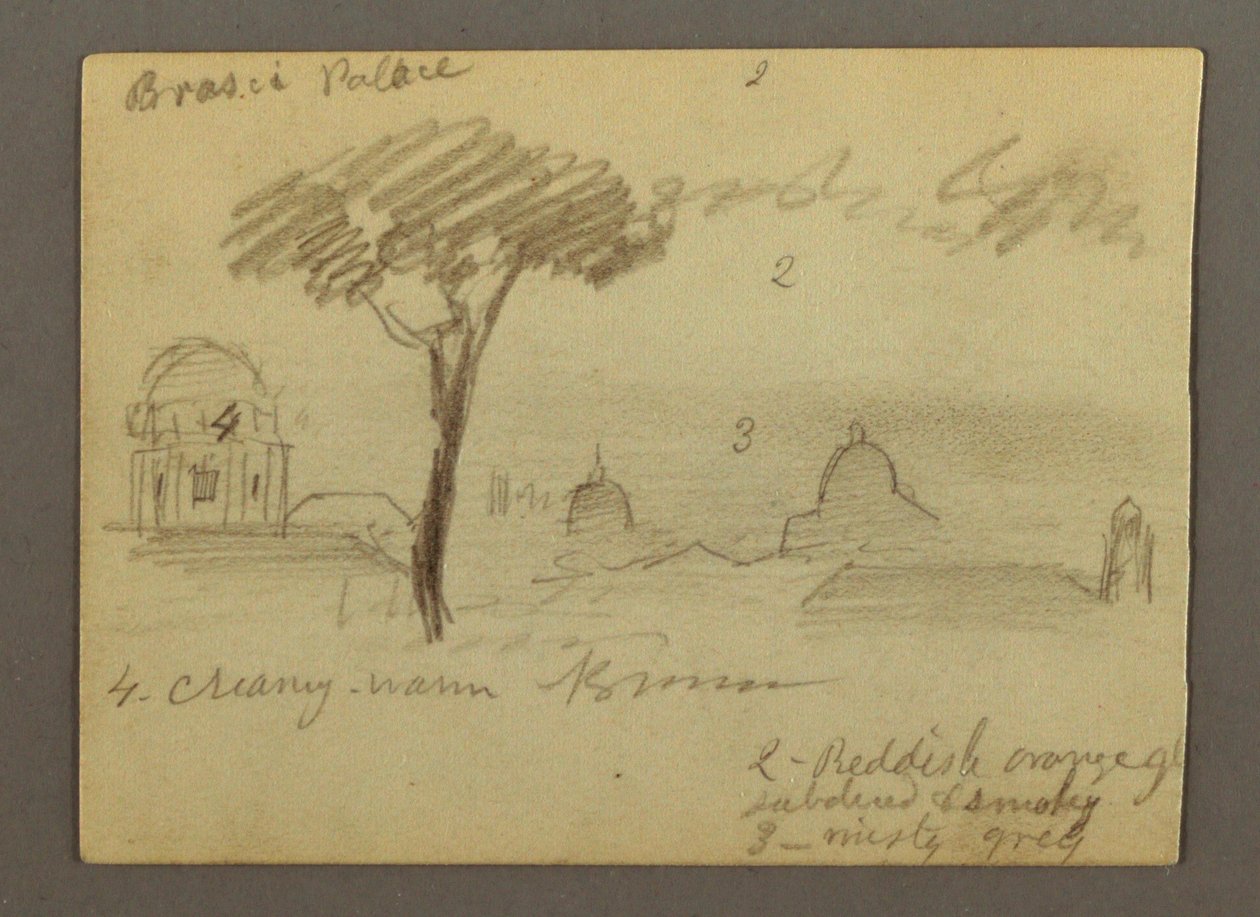 Brasci Palace
2
2
3
4
4- creamy-warm Brown
2- Reddish orange gl
subdued & smokey
3- misty grey